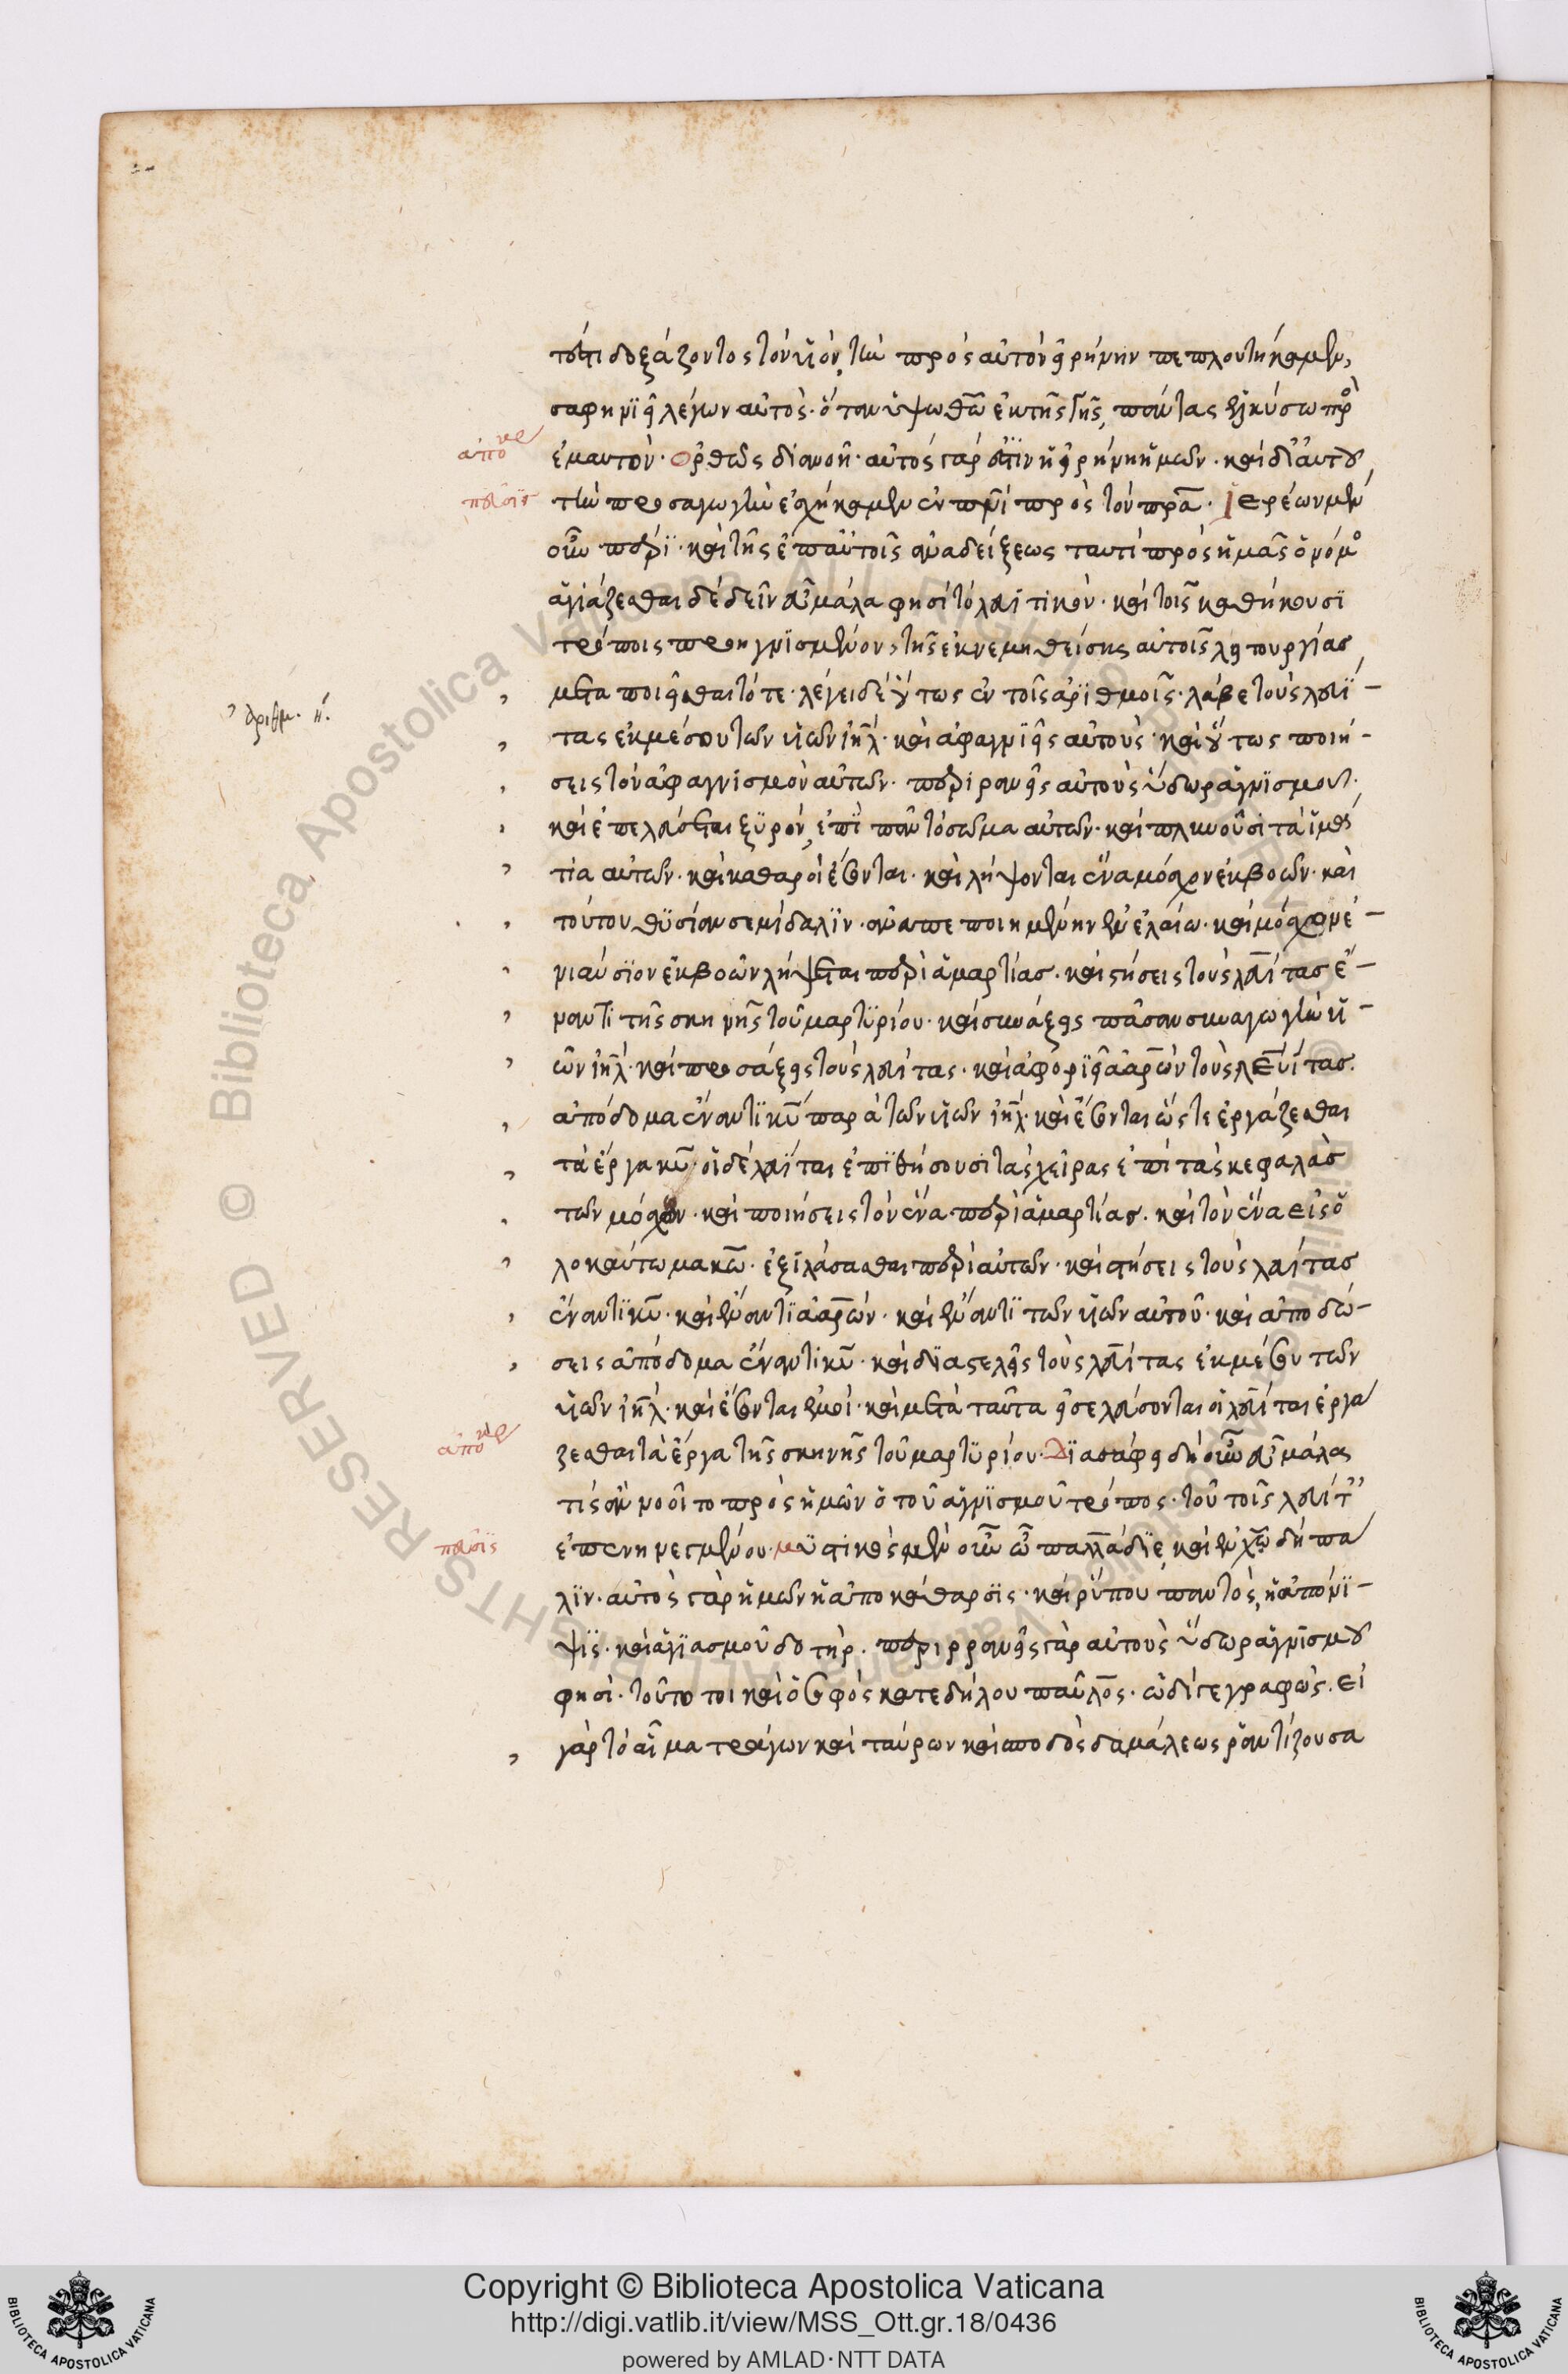 τότε δοξάζοντος τὸν υἱὸν, τὴν πρὸς αὐτὸν εἰρήνην πεπλουτήκαμεν,
σαφηνιεῖ λέγων αὐτός· ὅταν ὑψωθῶ ἐκ τῆς γῆς, πάντας ἑλκύσω πρὸ
ἀποκρ
ἐμαυτόν· Ὀρθῶς διανοῆ· αὐτὸς γάρ ἐστιν ἡ εἰρήνη ἡμῶν· καὶ δι' αὐτοῦ
παλλάδις
τὴν προσαγωγὴν ἐσχήκαμεν ἐν πνι πρὸς τὸν πρα· Ἱερέων μὲν
οὖν πέρι· καὶ τῆς ἐπ' αὐτοῖς ἀναδείξεως ταυτὶ πρὸς ἡμᾶς ὁ νόμο
ἁγιάζεσθαι δὲ δεῖν εὖ μάλα φησὶ τὸ λευϊτικόν· καὶ τοῖς καθήκουσι
τρόποις προηγνισμένον, τῆς ἐκνεμηθείσης αὐτοῖς λειτουργίας
μεταποιεῖσθαι τότε· λέγει δὲ οὕτως ἐν τοῖς ἀριθμοῖς· λάβε τοὺς λευΐ-
ἀριθμ. η΄.
τας ἐκ μέσου τῶν υἱῶν ιηλ· καὶ ἀφαγνιεῖς αὐτούς· καὶ οὕτως ποιή-
σεις τὸν ἀφαγνισμὸν αὐτῶν· περιρανεῖς αὐτοὺς ὕδωρ ἁγνισμοῦ·
καὶ ἐπελεύσεται ξυρόν, ἐπὶ πᾶν τὸ σῶμα αὐτῶν· καὶ πλυνοῦσι τὰ ἱμά
τια αὐτῶν· καὶ καθαροὶ ἔσονται· καὶ λήψονται ἕνα μόσχον ἐκ βοῶν· καὶ
τούτου θυσίαν σεμίδαλιν· ἀναπεποιημένην ἐν ἐλαίω· καὶ μόσχον ἐ-
νιαύσιον ἐκ βοῶν λήψεται περὶ ἁμαρτίας· καὶ στήσεις τοὺς λευίτας ἔ-
ναντι τῆς σκηνῆς τοῦ μαρτυρίου· καὶ συνάξεις πᾶσαν συναγωγὴν υἱ-
ῶν ιηλ· καὶ προσάξεις τοὺς λευίτας· καὶ ἀφοριεῖ ἀαρὼν τοὺς λευίτας·
ἀπόδομα ἔναντι κυ παρὰ τῶν υἱῶν ιηλ· καὶ ἔσονται ὥστε ἐργάζεσθαι
τὰ ἔργα κυ· οἱ δὲ λευῖται ἐπιθήσουσι τὰς χεῖρας ἐπὶ τὰς κεφαλὰς
τῶν μόσχων· καὶ ποιήσεις τὸν ἕνα περὶ ἁμαρτίας· καὶ τὸν ἕνα εἰς ὁ
λοκαύτωμα κω· ἐξιλάσασθαι περὶ αὐτῶν· καὶ στήσεις τοὺς λευίτας
ἔναντι κυ· καὶ ἔναντι ἀαρών· καὶ ἔναντι τῶν υἱῶν αὐτοῦ· καὶ ἀποδώ-
σεις ἀπόδομα ἔναντι κυ· καὶ διαστελεῖς τοὺς λευίτας ἐκ μέσου τῶν
υἱῶν ιηλ· καὶ ἔσονται ἐμοί· καὶ μετὰ ταῦτα εἰσελεύσονται οἱ λευῖται ἐργά
ἀποκρ
ζεσθαι τὰ ἔργα τῆς σκηνῆς τοῦ μαρτυρίου· Διασάφει δὴ οὖν εὖ μάλα
τίς ἂν νοοῖτο πρὸς ἡμῶν ὁ τοῦ ἁγνισμοῦ τρόπος· τοῦ τοῖς λευίτ
παλλάδις
ἐπενηνεγμένου· μυστικὸς μὲν οὖν ὦ παλλάδιε, καὶ ἐν χω δὴ πά
λιν· αὐτὸς γὰρ ἡμῶν ἡ ἀποκάθαρσις· καὶ ῥύπου παντὸς, ἡ ἀπόνι-
ψις· καὶ ἁγιασμοῦ δοτήρ· περιρρανεῖς γὰρ αὐτοὺς ὕδωρ ἁγνισμοῦ
φησί· τοῦτό τοι καὶ ὁ σοφὸς κατεδήλου παῦλος· ὡδὶ γεγραφώς· εἰ
γὰρ τὸ αἷμα τράγων καὶ ταύρων καὶ σποδὸς δαμάλεως ῥαντίζουσα
Copyright © Biblioteca Apostolica Vaticana
http://digi.vatlib.it/view/MSS_Ott.gr.18/0436
powered by AMLAD·NTT DATA